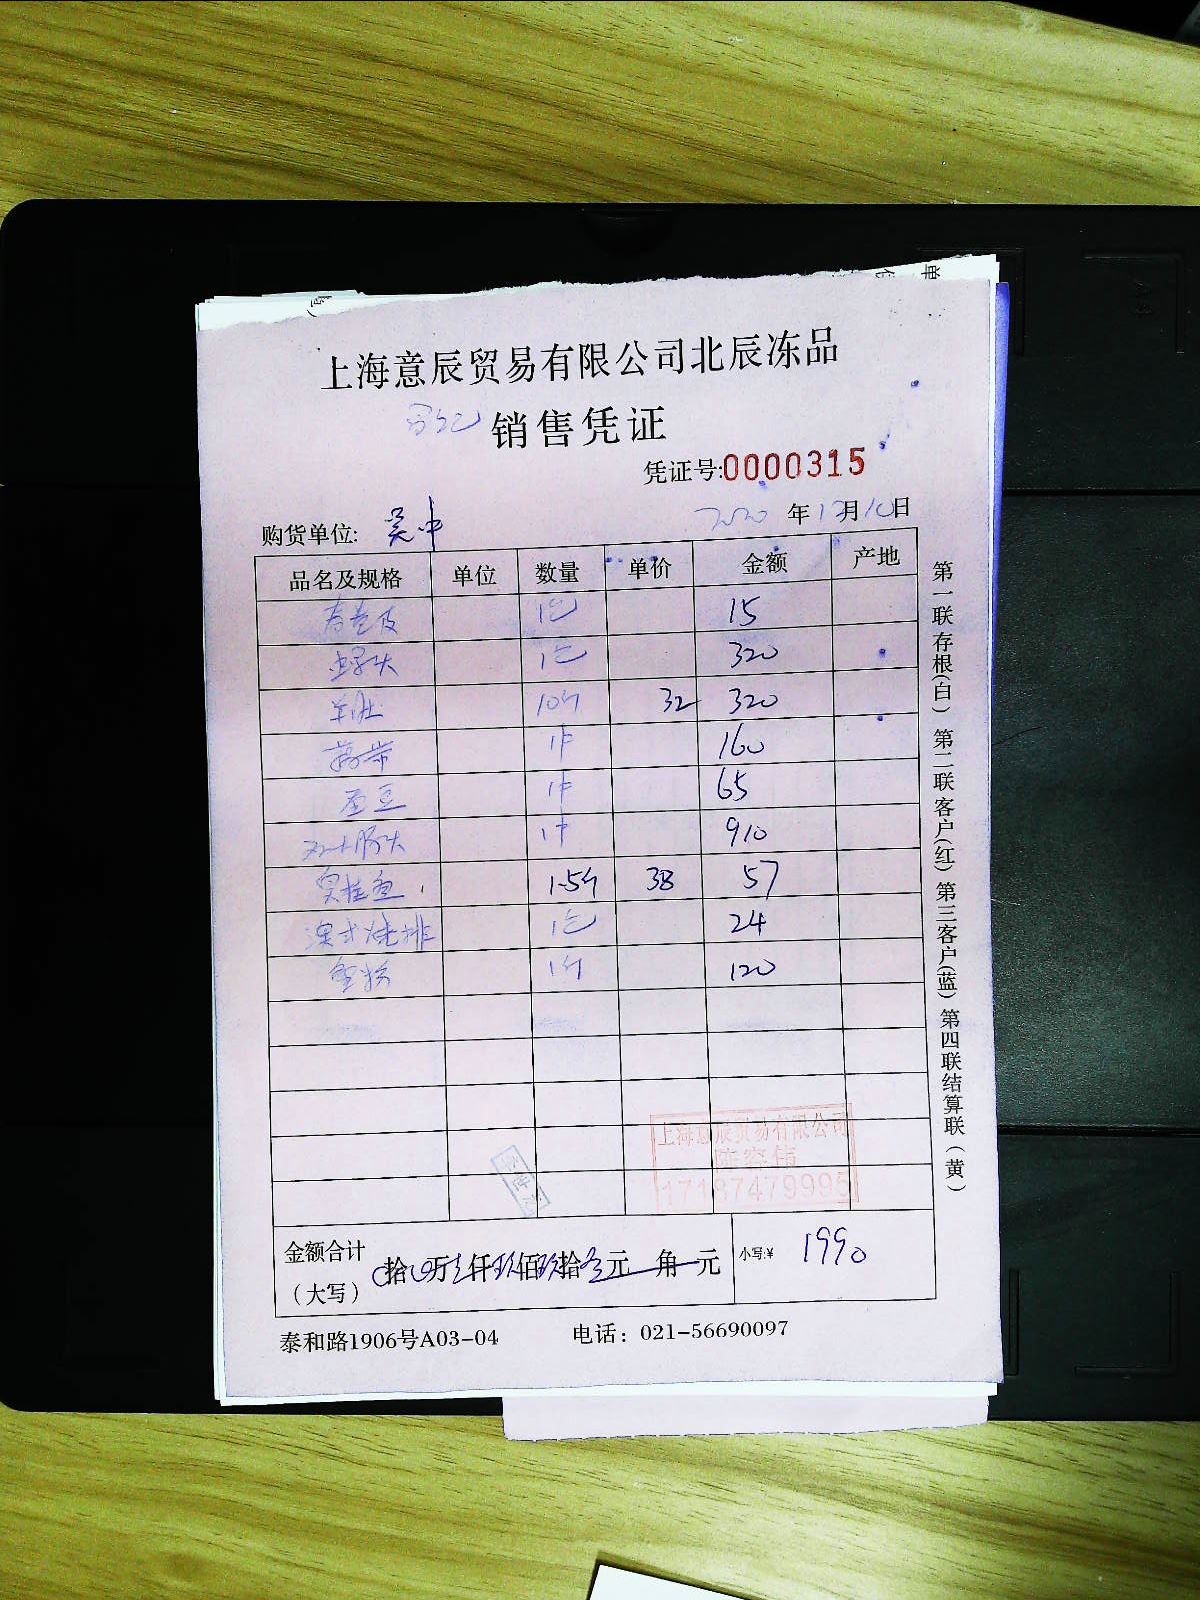 上海意辰贸易有限公司北辰冻品
销售凭证
凭证号:0000315
购货单位: 吴中 2020年12月10日
品名及规格 单位 数量 单价 金额 产地
春卷皮 1包 15
螺头 1包 320
羊肚 10斤 32 320
1件 160
蚕豆 1件 65
1件 910
臭桂鱼 1.5斤 38 57
澳式烤排 1包 24
鱼籽 1件 120
上海意辰贸易有限公司
17187479995
金额合计
(大写) 拾 万 仟玖佰玖拾 元 角 元 小写:¥ 1990
泰和路1906号A03-04 电话: 021-56690097
第一联存根(白) 第二联客户(红) 第三客户(蓝) 第四联结算联(黄)